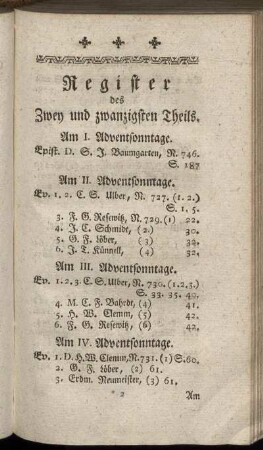 Register
des
Zwey und zwanzigsten Theils.
Am I. Adventsonntage.
Epist. D. S. J. Baumgarten, N. 746.
S. 187
Am II. Adventsonntage.
Ev. 1. 2. C. S. Ulber, N. 727. (1. 2.)
S. 1. 5.
3. F. G. Resewitz, N. 729. (1) 22.
4. J. C. Schmidt, (2) 30.
5. G. F. Löber, (3) 32.
6. J. T. Künnell, (4) 32.
Am III. Adventsonntage.
Ev. 1. 2. 3. C. S. Ulber, N. 730. (1. 2. 3.)
S. 33. 35. 40.
4. M. C. F. Bahrdt, (4) 41.
5. H. W. Clemm, (5) 42.
6. F. G. Resewitz, (6) 42.
Am IV. Adventsonntage.
Ev. 1. D. H. W. Clemm, N. 731. (1) S. 60.
2. G. F. Löber, (2) 61.
3. Erdm. Neumeister, (3) 61.
* 2 Am